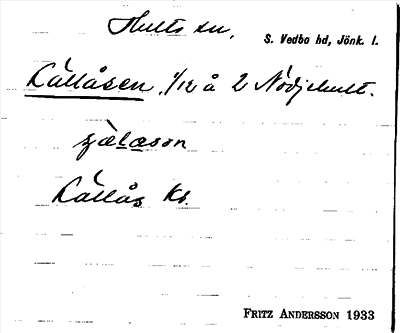 Hults sn, S. Vedbo hd, Jönk. l.
Källåsen, 1/12 å 2 Nödjehult.
Källås Kb.
FRITZ ANDERSSON 1933